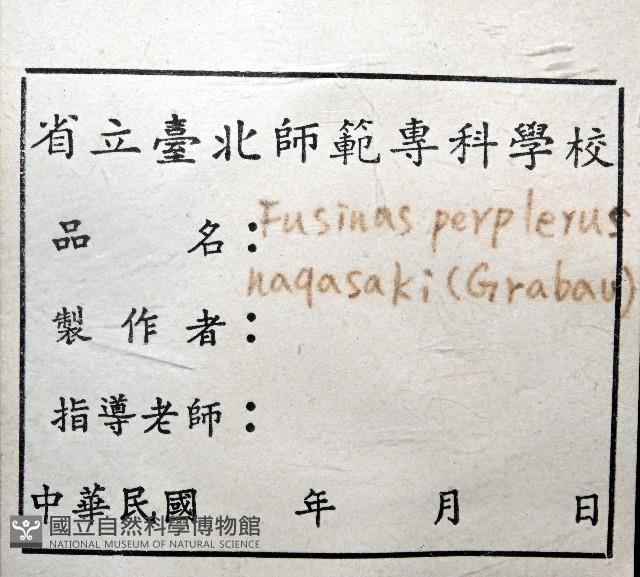 省立臺北師範專科學校
品名：Fusinas perplerus
nagasaki (Grabau)
製作者：
指導老師：
中華民國 年 月 日
國立自然科學博物館
NATIONAL MUSEUM OF NATURAL SCIENCE